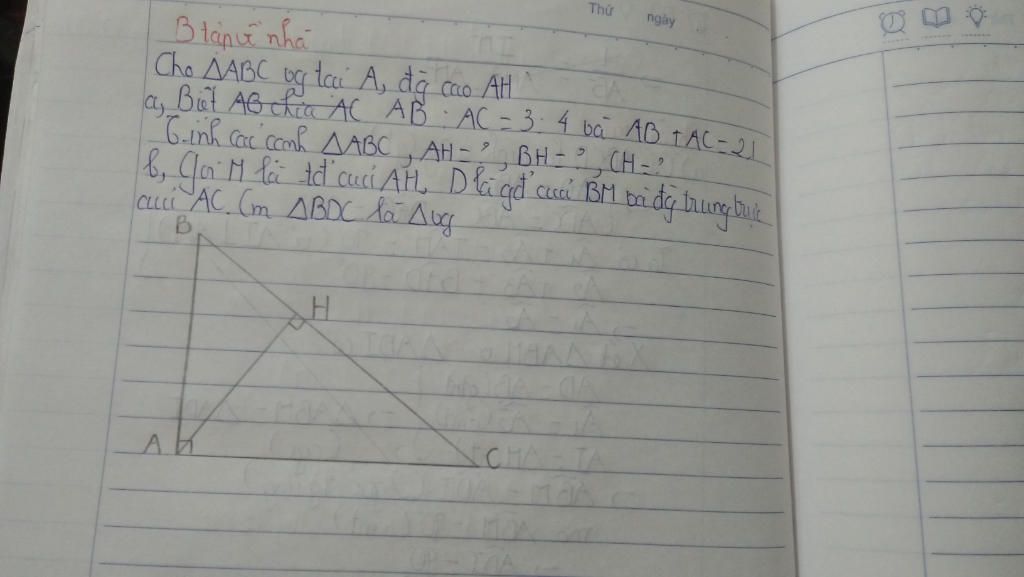 Thứ ngày
B tập về nhà
Cho ΔABC vg tại A, đg cao AH
a, Biết AB chia AC AB : AC = 3 : 4 và AB + AC = 21
Tính các cạnh ΔABC, AH = ?, BH = ?, CH = ?
b, Gọi M là tđ của AH, D là gđ của BM và đg trung trực
của AC. Cm ΔBDC là Δvg
B
H
A
C